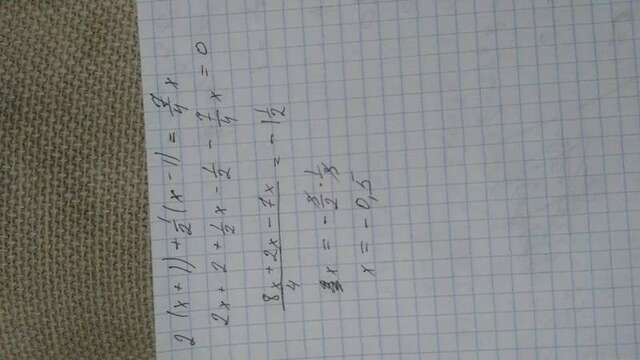 2 (x+1) + 1/2 (x-1) = 7/4 x
2x + 2 + 1/2 x - 1/2 - 7/4 x = 0
8x + 2x - 7x / 4 = - 1 1/2
3x = - 3/2 · 1/3
x = - 0,5